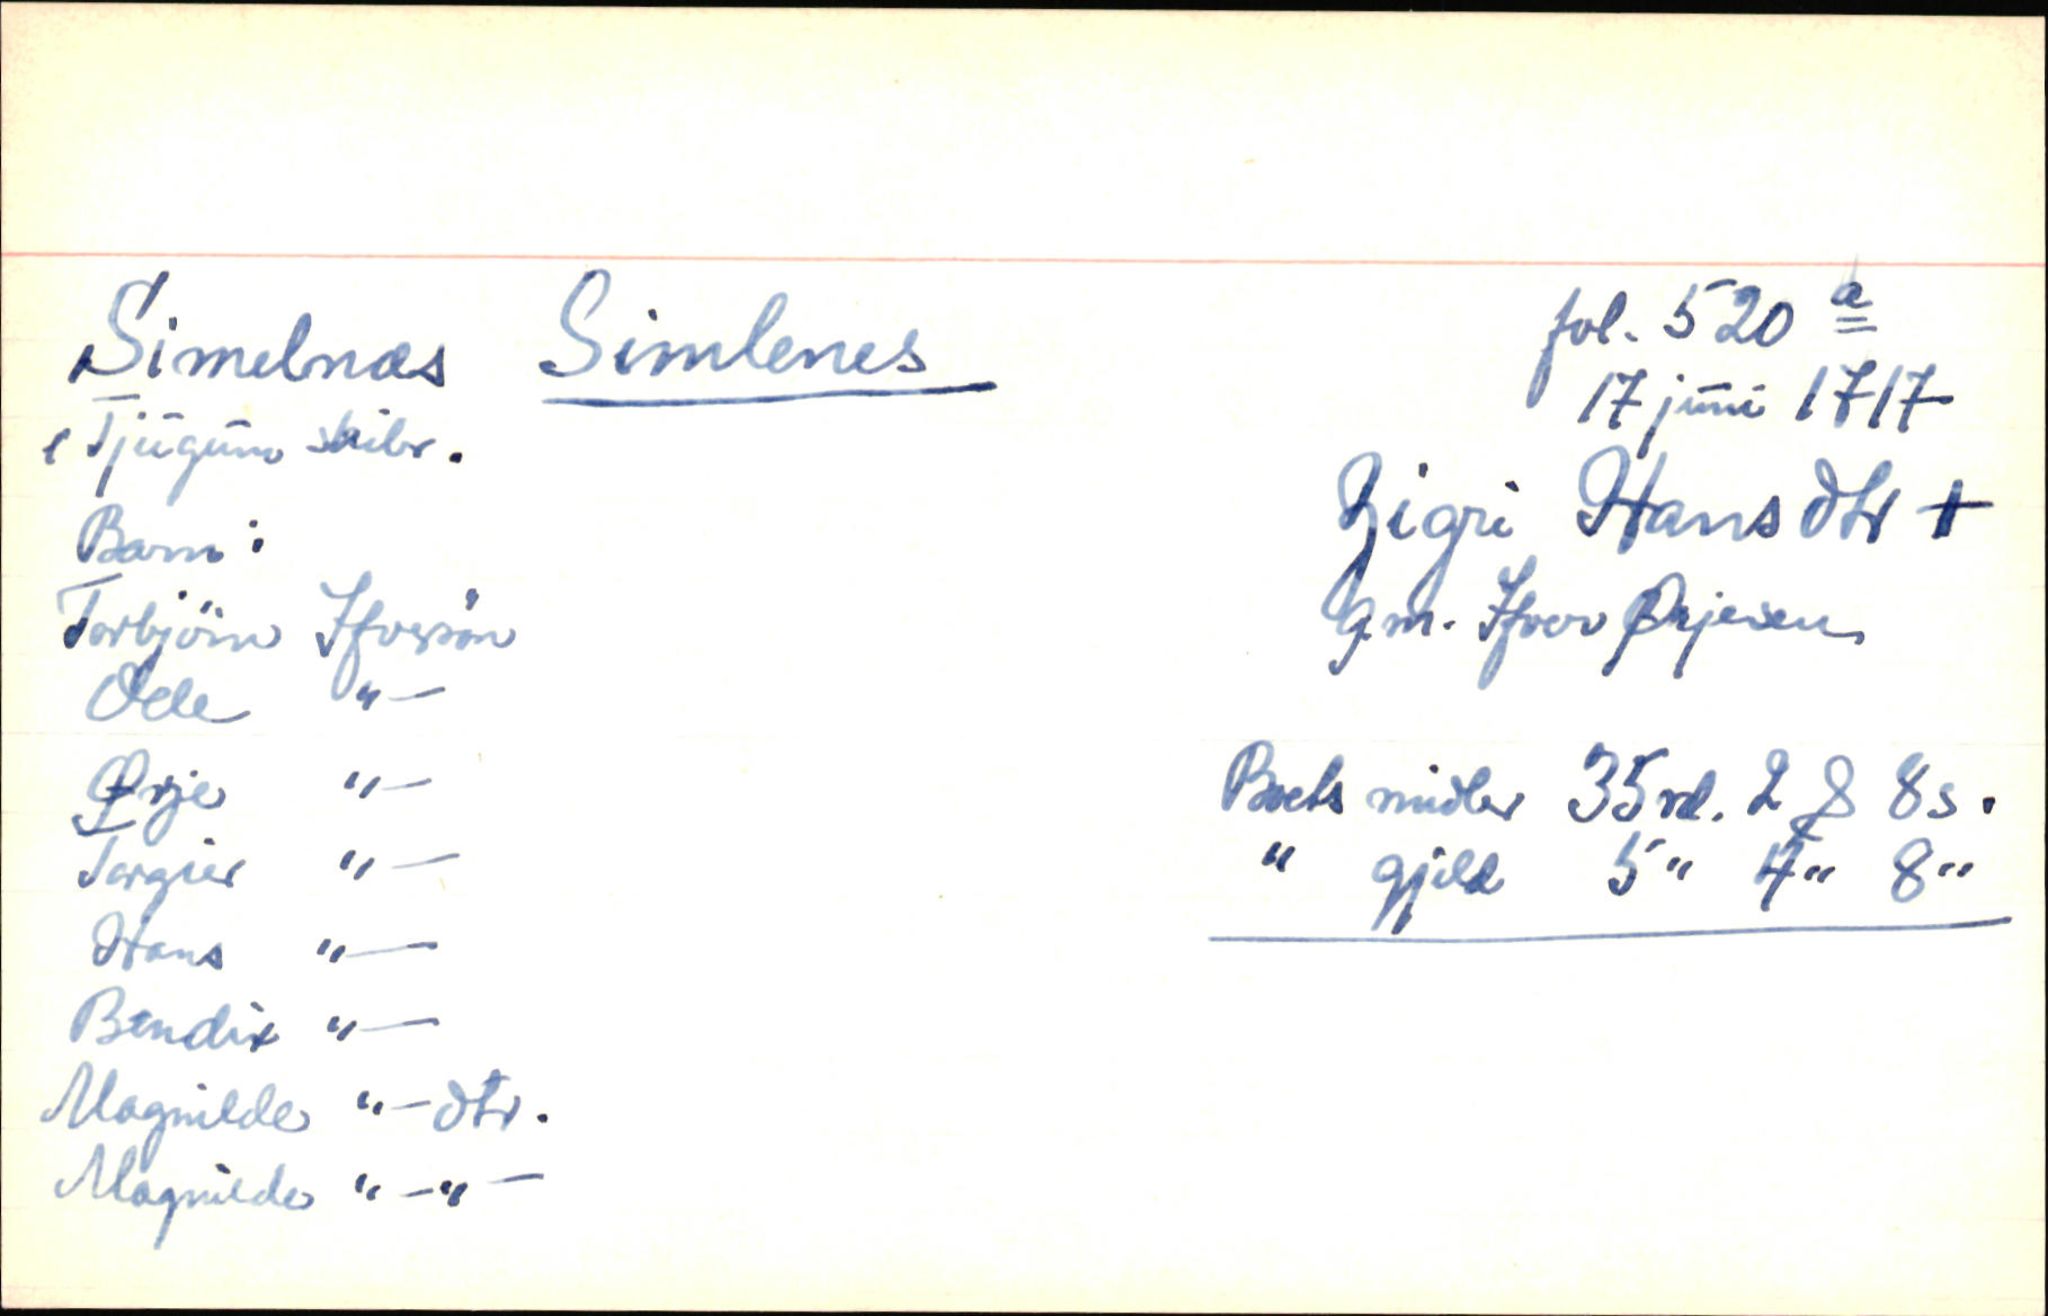 Simelnæs Simlenes
i Tjugum skibr.
Barn:
Torbjörn Ifversön
Oele "—
Ørje "—
Torgier "—
Hans "—
Bendix "—
Magnilde "—dtr.
Magnilde "—"—
fol. 520 a
17 juni 1717
Zigri Hansdtr +
g.m. Ifver Ørjesen
Boets midler 35 rd. 2 8 s.
" gjeld 5 " 4 " 8 "